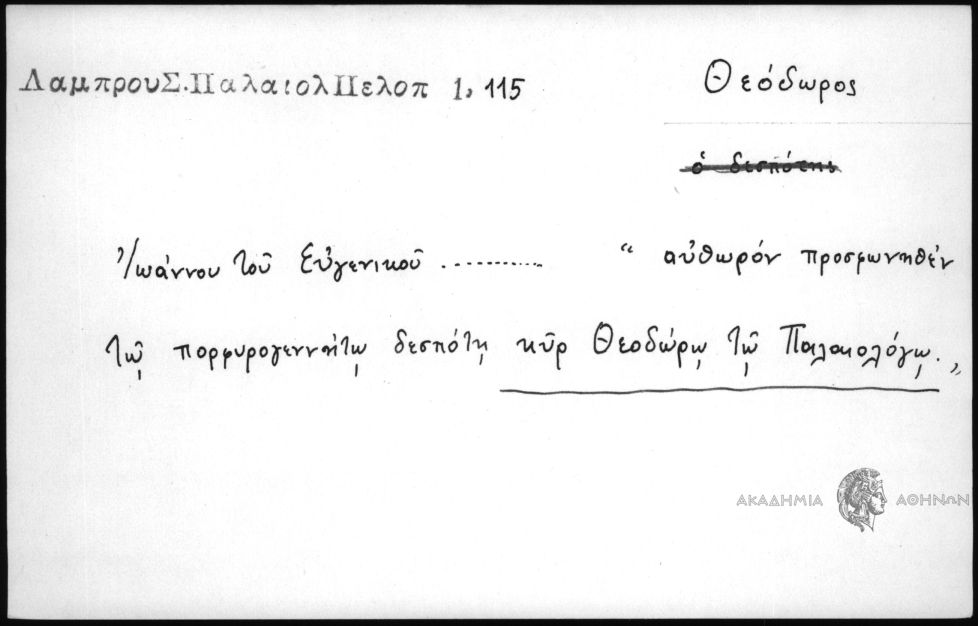 ΛαμπρουΣ.ΠαλαιολΠελοπ 1, 115
Θεόδωρος
ὁ δεσπότης
Ἰωάννου τοῦ Εὐγενικοῦ ............ “ αὐθωρόν προσφωνηθέν
τῷ πορφυρογεννήτῳ δεσπότῃ κῦρ Θεοδώρῳ τῷ Παλαιολόγῳ. „
ΑΚΑΔΗΜΙΑ ΑΘΗΝΩΝ